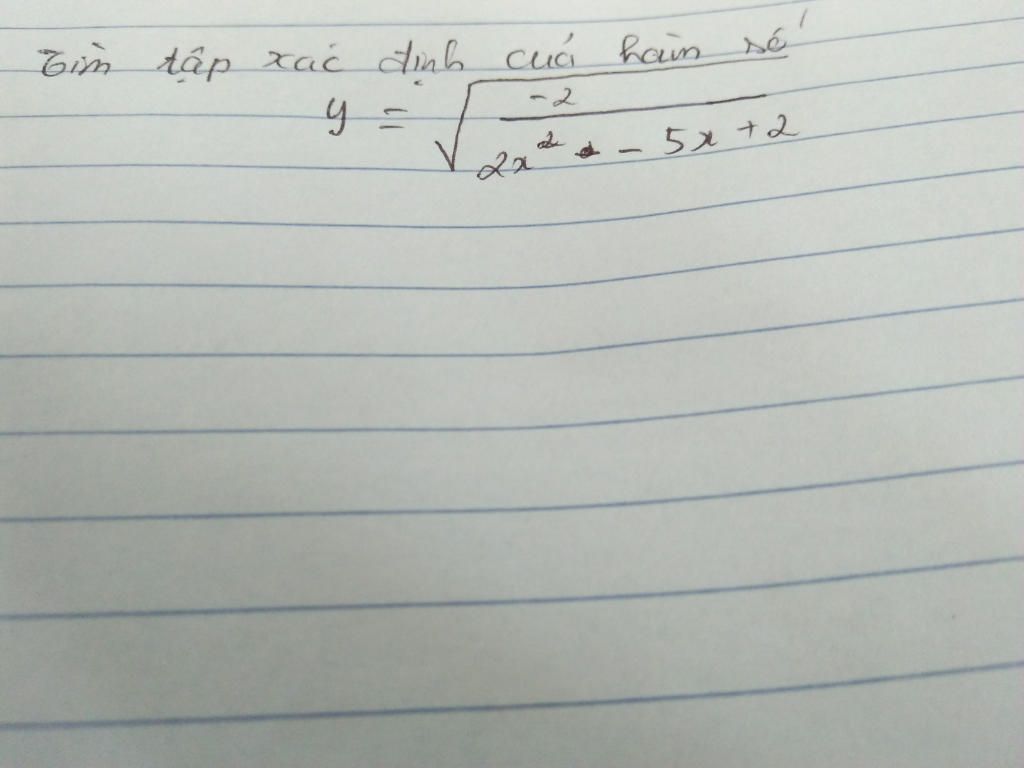 Tìm tập xác định cuả hàm số
y = √(-2 / (2x² - 5x + 2))